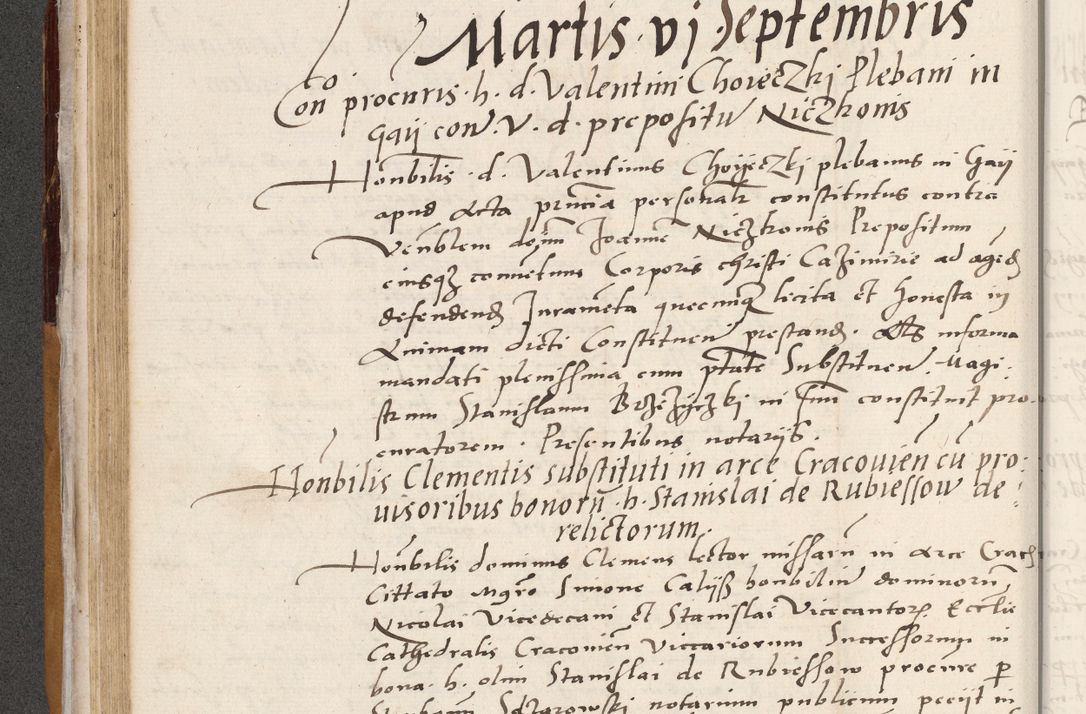 Martis · vj · Septembris
Con procuris · h · d · Valentini Choieczkj Plebani in
Gaij con · V · d · prepositu Niczkonis
Honbilis · d · Valentinus Choijeczkj plebanus in Gaij
apud Acta pruncia personalr constitutus contra
Venblem dojm Joanne Niczkonis Prepositum
eiusqz conuetum Corporis christi Cazimirie ad agedz
defendendz Jurameta quecumqz licita et honesta in
Animam dicti Constituen prestandz · Als informa
mandati plenissima cum ptate Substituen · Magi ·
strum Stanislaum Brzezyczkj in suu constituit pro-
curatorem · Presentibus notarijs ·
Honbilis Clementis substituti in arce Cracouien cu pro:
uisoribus bonoru · h · Stanislai de Rubiessow de:
relictorum ·
Honbilis dominus Clemens lector missaru in Arce Crac
Cittato Mgro Simone Calijß honbiliu dominoru
Nicolai Vicedecani et Stanislai Vicecantor Eccelie
Cathedralis Cracouien Viccariorum Successorum in
bona · h · olim Stanislai de Rubiessow procure p
Sdzarowski notarium publicum peciit in